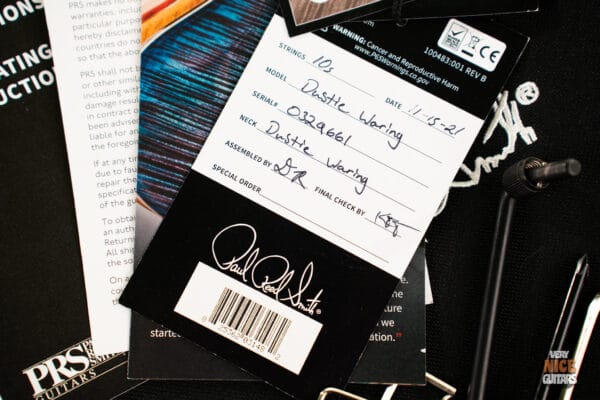 ONS
ATING
UCTIONS
PRS makes no
warranties, inclu
particular purpo
hereby disclaime
countries do no
so that the abov
PRS shall not b
or other simila
including with
damage result
in contract o
been advised
liable for an
the foregoin
If at any tim
due to fau
repair the
specificat
of the gu
To obta
an auth
Return
All ship
the so
On a
PRS
GUITARS
WARNING: Cancer and Reproductive Harm
www.P65Warnings.ca.gov
100483:001 REV B
CE
STRINGS 10s
MODEL Dustie Waring DATE 11-15-21
SERIAL# 0329661
NECK Dustie Waring
ASSEMBLED BY DR FINAL CHECK BY
SPECIAL ORDER
Paul Reed Smith®
started
ture
we
ation."
VERY
NICE
GUITARS